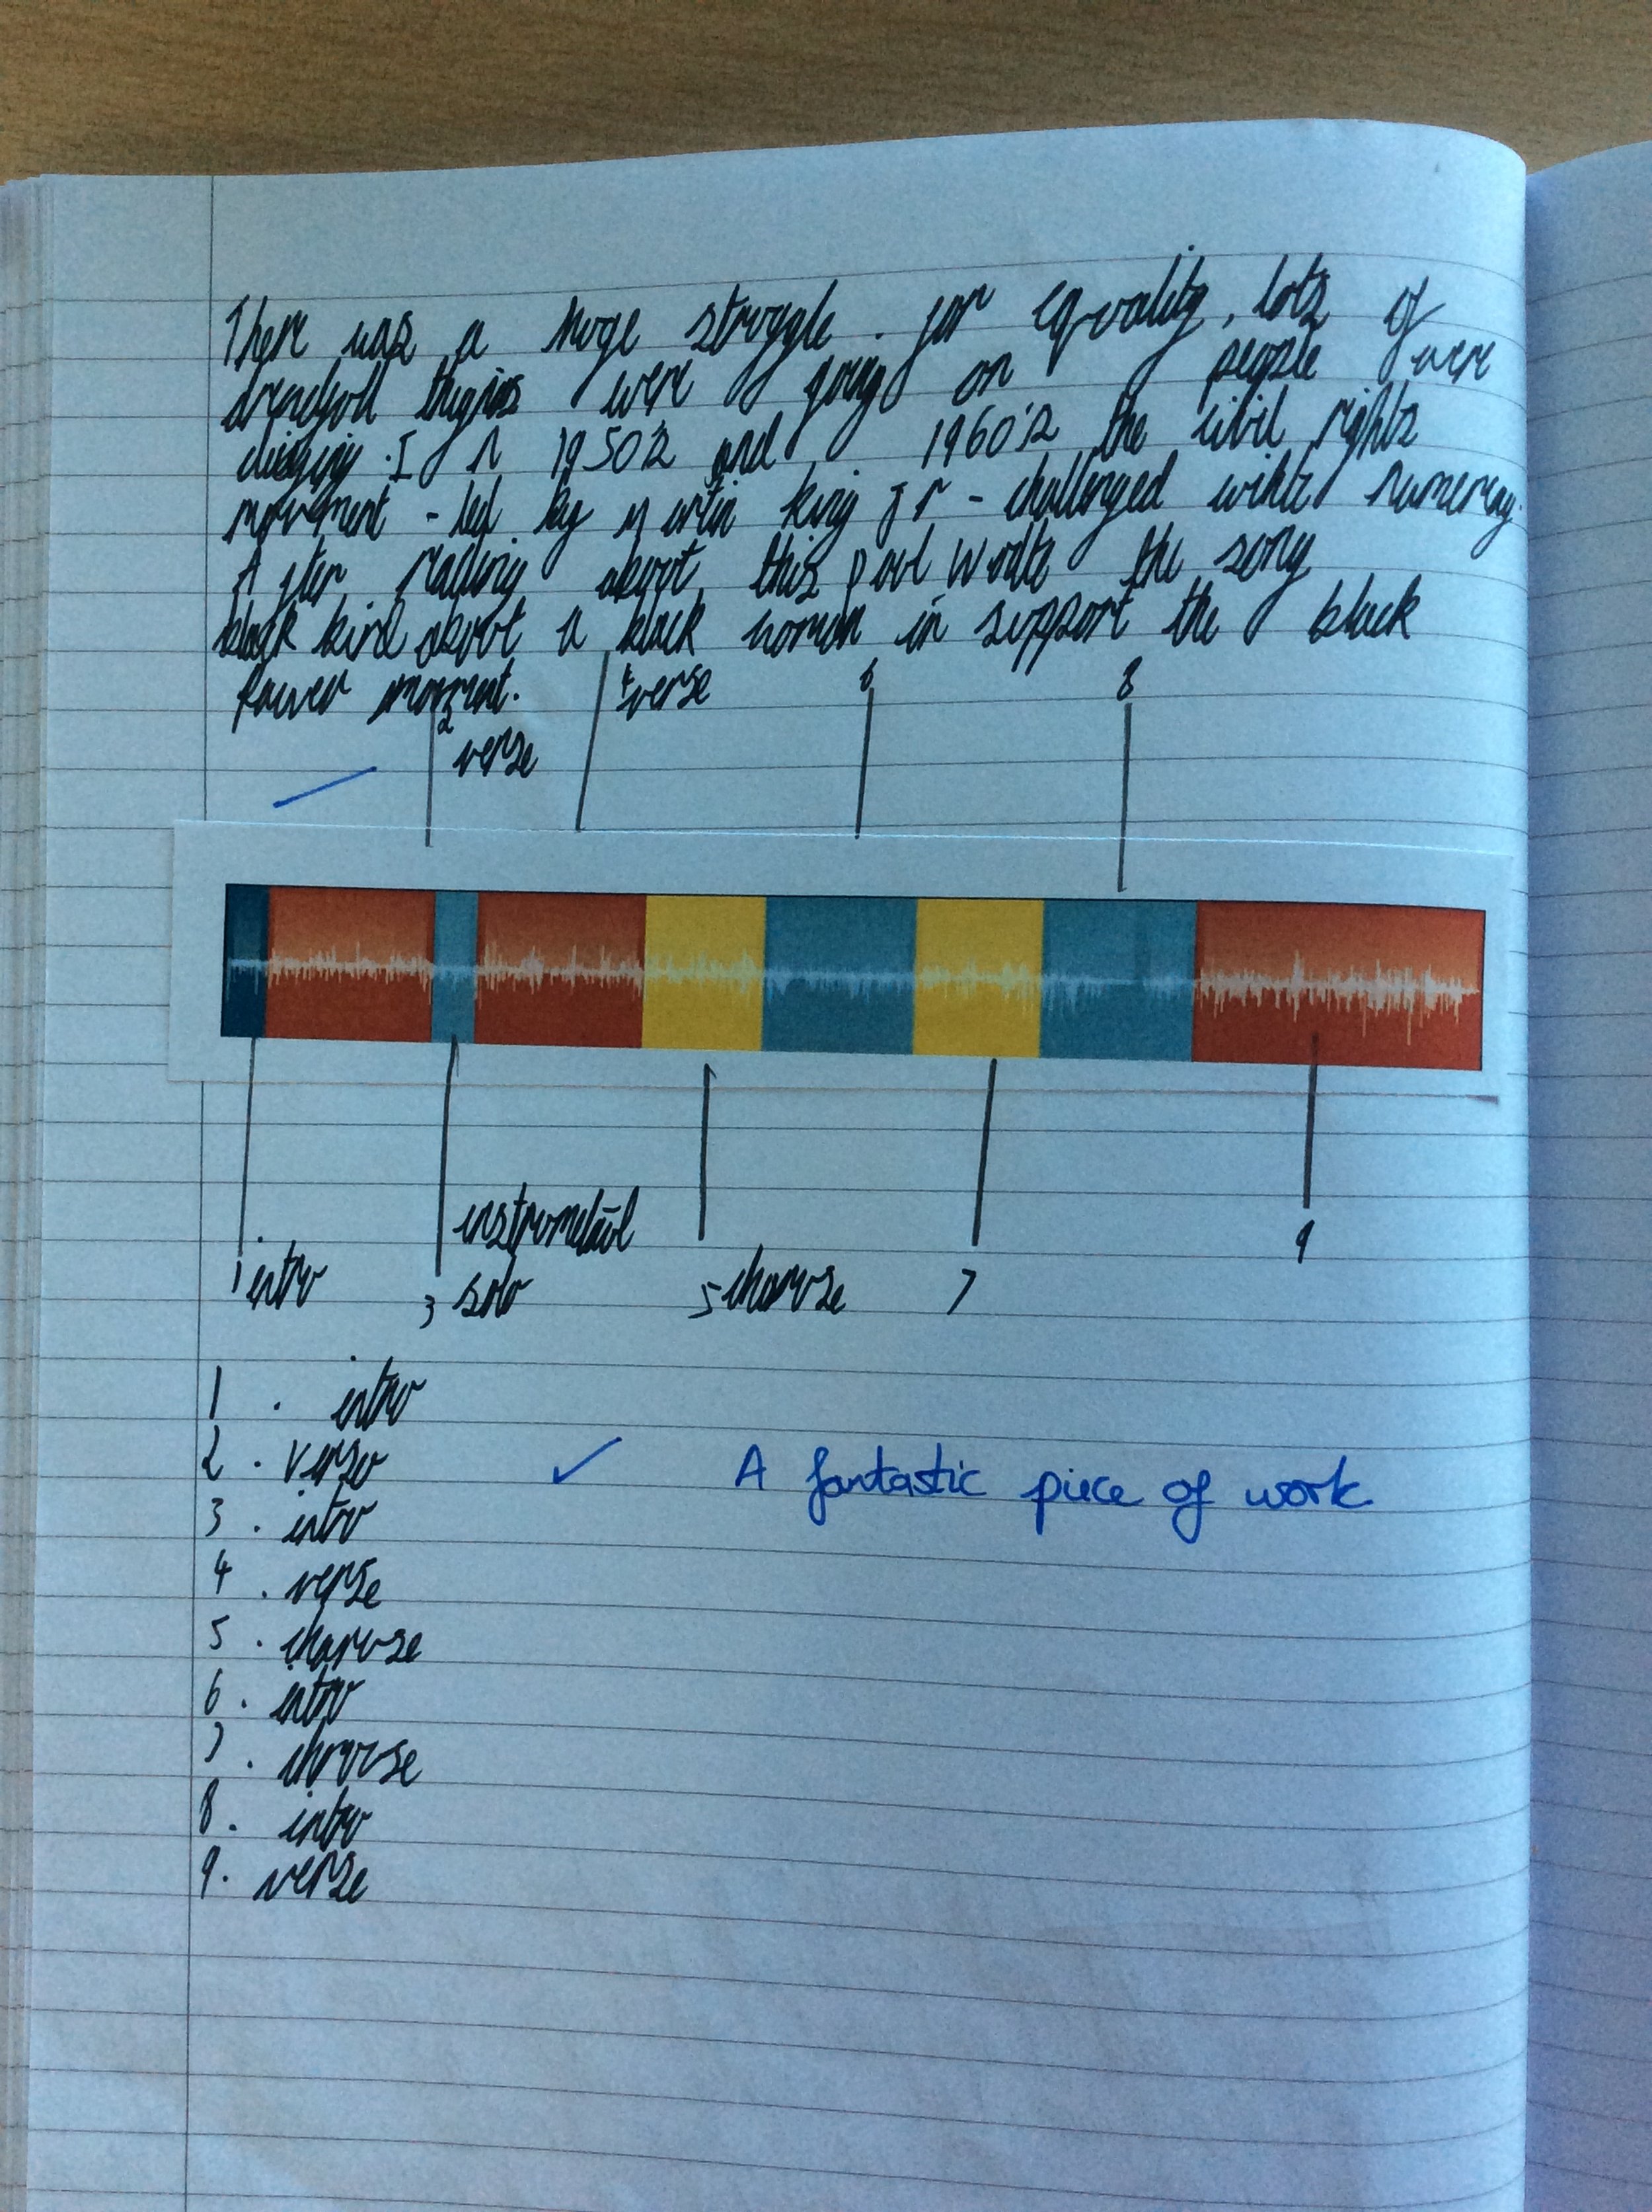 There was a huge struggle . for equality, lots of
dreadfull thigns were going on people were
dieing . I n 1950's and 1960's the civil rights
movement - led by martin king Jr - challenged wihte
After reading about this paul wrote the song
black bird about a black woman in support the black
Power movment.
2 verse
4 verse
6
8
1 intro
3 instrometail
solo
5 chorvse
7
9
1 . intro
2 . verse
3 . intro
4 . verse
5 . chorvse
6 . intro
7 . chorvse
8 . intro
9 . verse
A fantastic piece of work